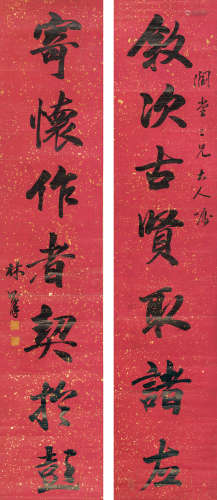 敘次古賢取諸左
潤堂兄大人屬
寄懷作者契於彭
林